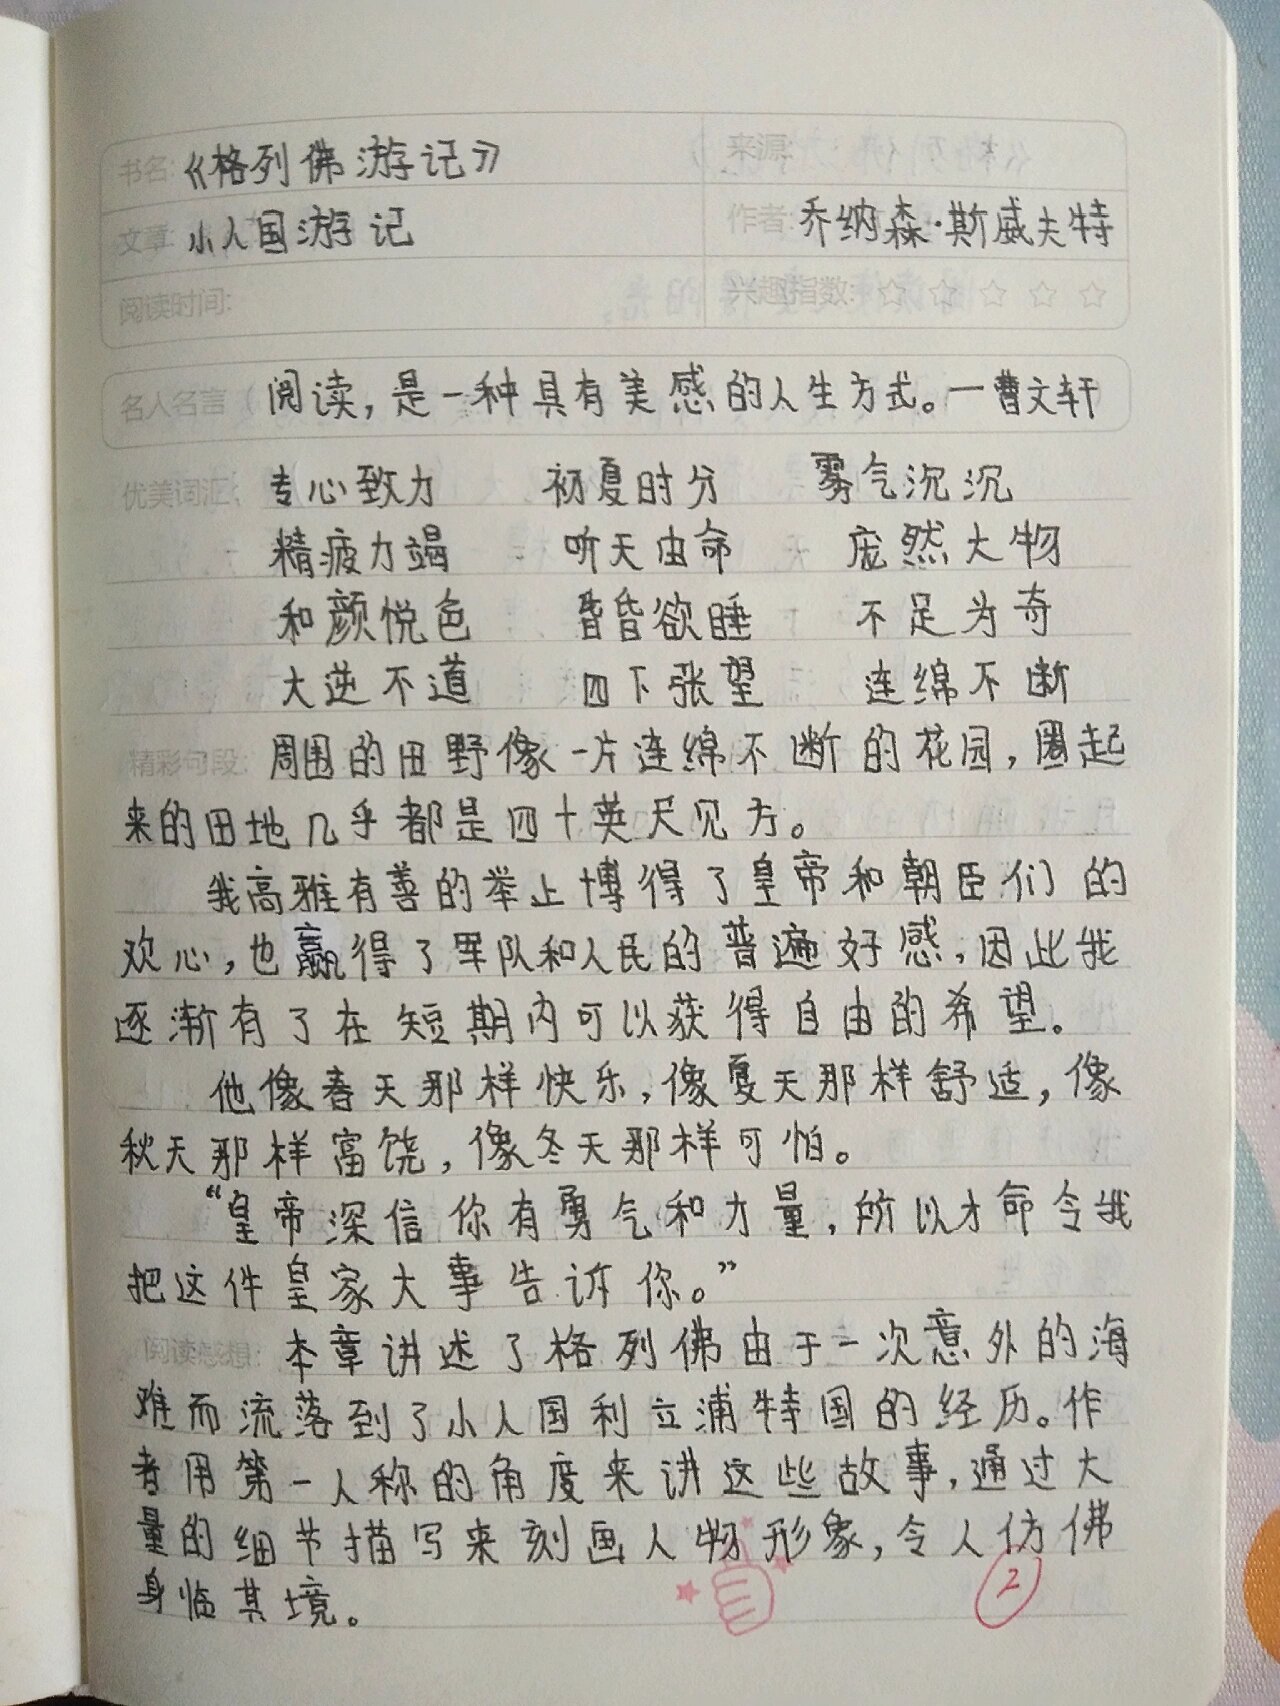 书名:《格列佛游记》 来源:
文章: 小人国游记 作者: 乔纳森·斯威夫特
阅读时间: 兴趣指数: ☆ ☆ ☆ ☆ ☆
名人名言( 阅读，是一种具有美感的人生方式。—曹文轩
优美词汇: 专心致力 初夏时分 雾气沉沉
精疲力竭 听天由命 庞然大物
和颜悦色 昏昏欲睡 不足为奇
大逆不道 四下张望 连绵不断
精彩句段: 周围的田野像一片连绵不断的花园，圈起
来的田地几乎都是四十英尺见方。
我高雅有善的举止博得了皇帝和朝臣们的
欢心，也赢得了军队和人民的普遍好感，因此我
逐渐有了在短期内可以获得自由的希望。
他像春天那样快乐，像夏天那样舒适，像
秋天那样富饶，像冬天那样可怕。
“皇帝深信你有勇气和力量，所以才命令我
把这件皇家大事告诉你。”
阅读感想: 本章讲述了格列佛由于一次意外的海
难而流落到了小人国利立浦特国的经历。作
者用第一人称的角度来讲这些故事，通过大
量的细节描写来刻画人物形象，令人仿佛
身临其境。
2